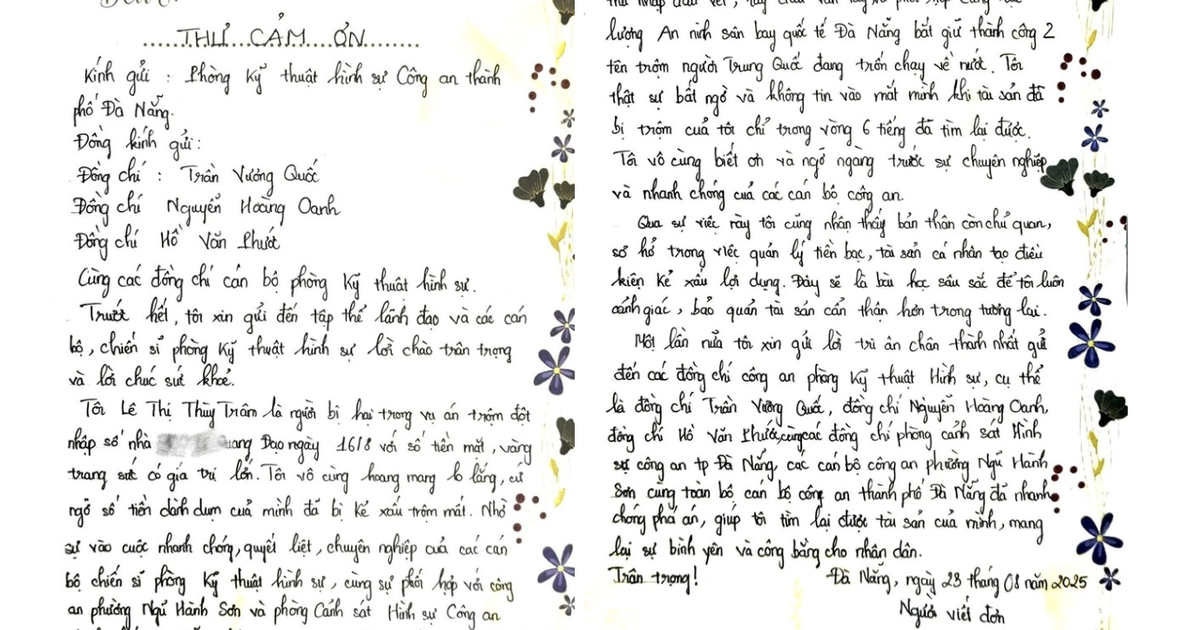 THƯ CẢM ƠN
Kính gửi : Phòng Kỹ thuật hình sự Công an thành
phố Đà Nẵng.
Đồng kính gửi:
Đồng chí : Trần Vương Quốc
Đồng chí Nguyễn Hoàng Oanh
Đồng chí Hồ Văn Phước
Cùng các đồng chí cán bộ phòng Kỹ thuật hình sự.
Trước hết, tôi xin gửi đến tập thể lãnh đạo và các cán
bộ, chiến sĩ phòng Kỹ thuật hình sự lời chào trân trọng
và lời chúc sức khoẻ.
Tôi Lê Thị Thuỳ Trâm là người bị hại trong vụ án trộm đột
nhập số nhà Quang Đạo ngày 16/8 với số tiền mặt, vàng
trang sức có giá trị lớn. Tôi vô cùng hoang mang lo lắng, cứ
ngỡ số tiền dành dụm của mình đã bị kẻ xấu trộm mất. Nhờ
sự vào cuộc nhanh chóng, quyết liệt, chuyên nghiệp của các cán
bộ chiến sĩ phòng Kỹ thuật hình sự, cùng sự phối hợp với công
an phường Ngũ Hành Sơn và phòng Cảnh sát Hình sự Công an
thu nhập dấu vết, lấy dấu vân tay và phối hợp cùng lực
lượng An ninh sân bay quốc tế Đà Nẵng bắt giữ thành công 2
tên trộm người Trung Quốc đang trốn chạy về nước. Tôi
thật sự bất ngờ và không tin vào mắt mình khi tài sản đã
bị trộm của tôi chỉ trong vòng 6 tiếng đã tìm lại được.
Tôi vô cùng biết ơn và ngỡ ngàng trước sự chuyên nghiệp
và nhanh chóng của các cán bộ công an.
Qua sự việc này tôi cũng nhận thấy bản thân còn chủ quan,
sơ hở trong việc quản lý tiền bạc, tài sản cá nhân tạo điều
kiện kẻ xấu lợi dụng. Đây sẽ là bài học sâu sắc để tôi luôn
cảnh giác, bảo quản tài sản cẩn thận hơn trong tương lai.
Một lần nữa tôi xin gửi lời tri ân chân thành nhất gửi
đến các đồng chí công an phòng Kỹ thuật Hình sự, cụ thể
là đồng chí Trần Vương Quốc, đồng chí Nguyễn Hoàng Oanh,
đồng chí Hồ Văn Phước, cùng các đồng chí phòng cảnh sát Hình
sự công an tp Đà Nẵng, các cán bộ công an phường Ngũ Hành
Sơn cùng toàn bộ cán bộ công an thành phố Đà Nẵng đã nhanh
chóng phá án, giúp tôi tìm lại được tài sản của mình, mang
lại sự bình yên và công bằng cho nhân dân.
Trân trọng!
Đà Nẵng, ngày 23 tháng 08 năm 2025
Người viết đơn